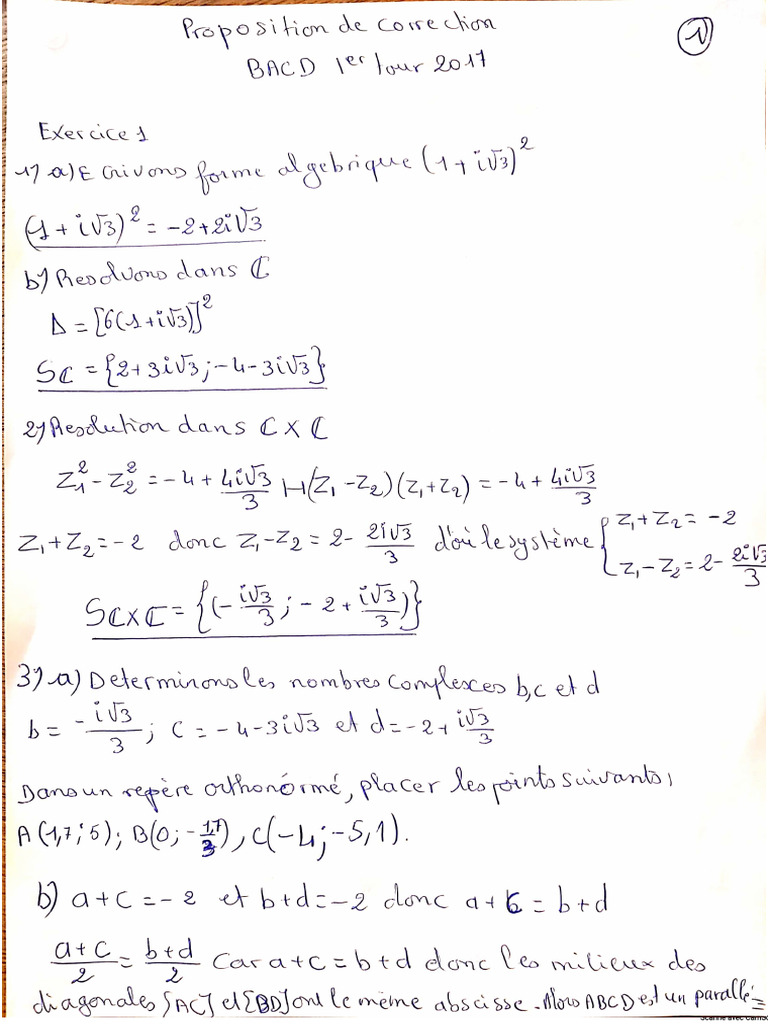 Proposition de correction
1
BACD 1er tour 2017
Exercice 1
1) a) Ecrivons forme algebrique (1+i√3)²
(1+i√3)² = -2+2i√3
b) Resolvons dans ℂ
Δ = [6(1+i√3)]²
Sℂ = {2+3i√3 ; -4-3i√3}
2) Resolution dans ℂ×ℂ
Z₁² - Z₂² = -4 + 4i√3/3 ⊢ (Z₁ - Z₂)(Z₁+Z₂) = -4 + 4i√3/3
Z₁+Z₂ = -2 donc Z₁-Z₂ = 2 - 2i√3/3 d'où le système { Z₁+Z₂ = -2
Z₁-Z₂ = 2 - 2i√3/3
Sℂ×ℂ = {(-i√3/3 ; -2 + i√3/3)}
3) a) Determinons les nombres complexes b, c et d
b = -i√3/3 ; c = -4-3i√3 et d = -2 + i√3/3
Dans un repère orthonormé, placer les points suivants,
A(1,7 ; 5) ; B(0 ; -1,7/3), C(-4 ; -5,1).
b) a+c = -2 et b+d = -2 donc a+c = b+d
a+c/2 = b+d/2 Car a+c = b+d donc les milieux des
diagonales [AC] et [BD] ont le même abscisse. Alors ABCD est un parallé=
Scanné avec CamSc